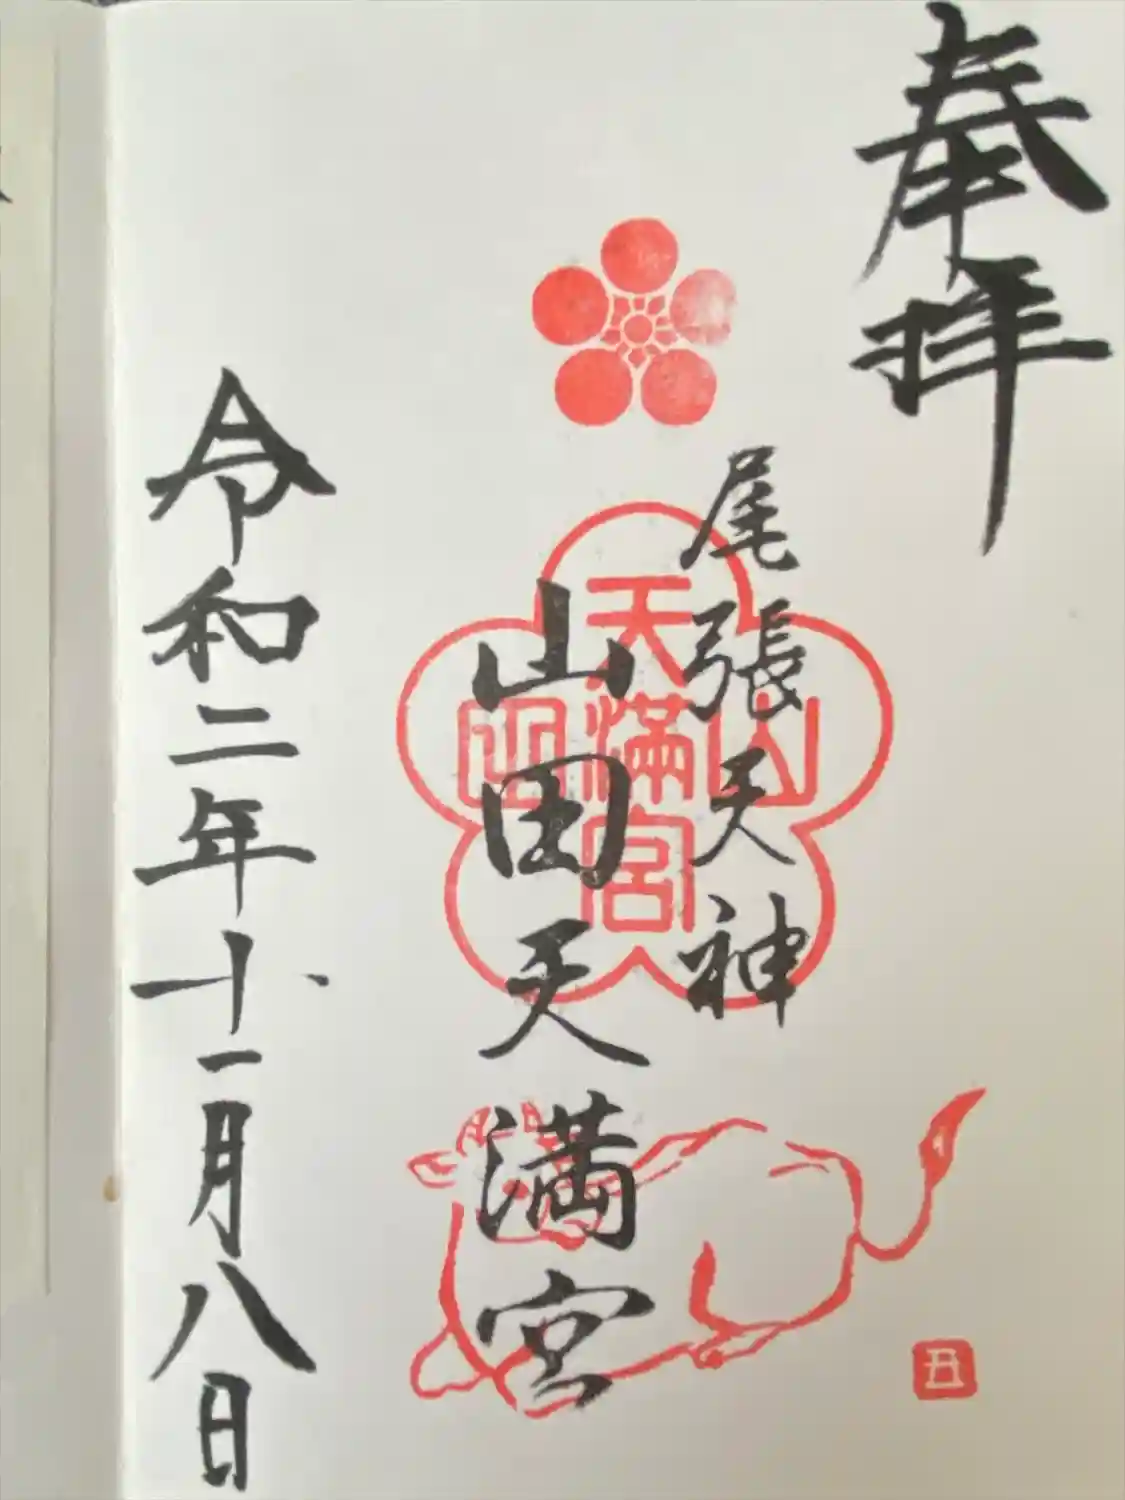 奉拝
尾張天神
山田天満宮
天満宮
山
令和二年十一月八日